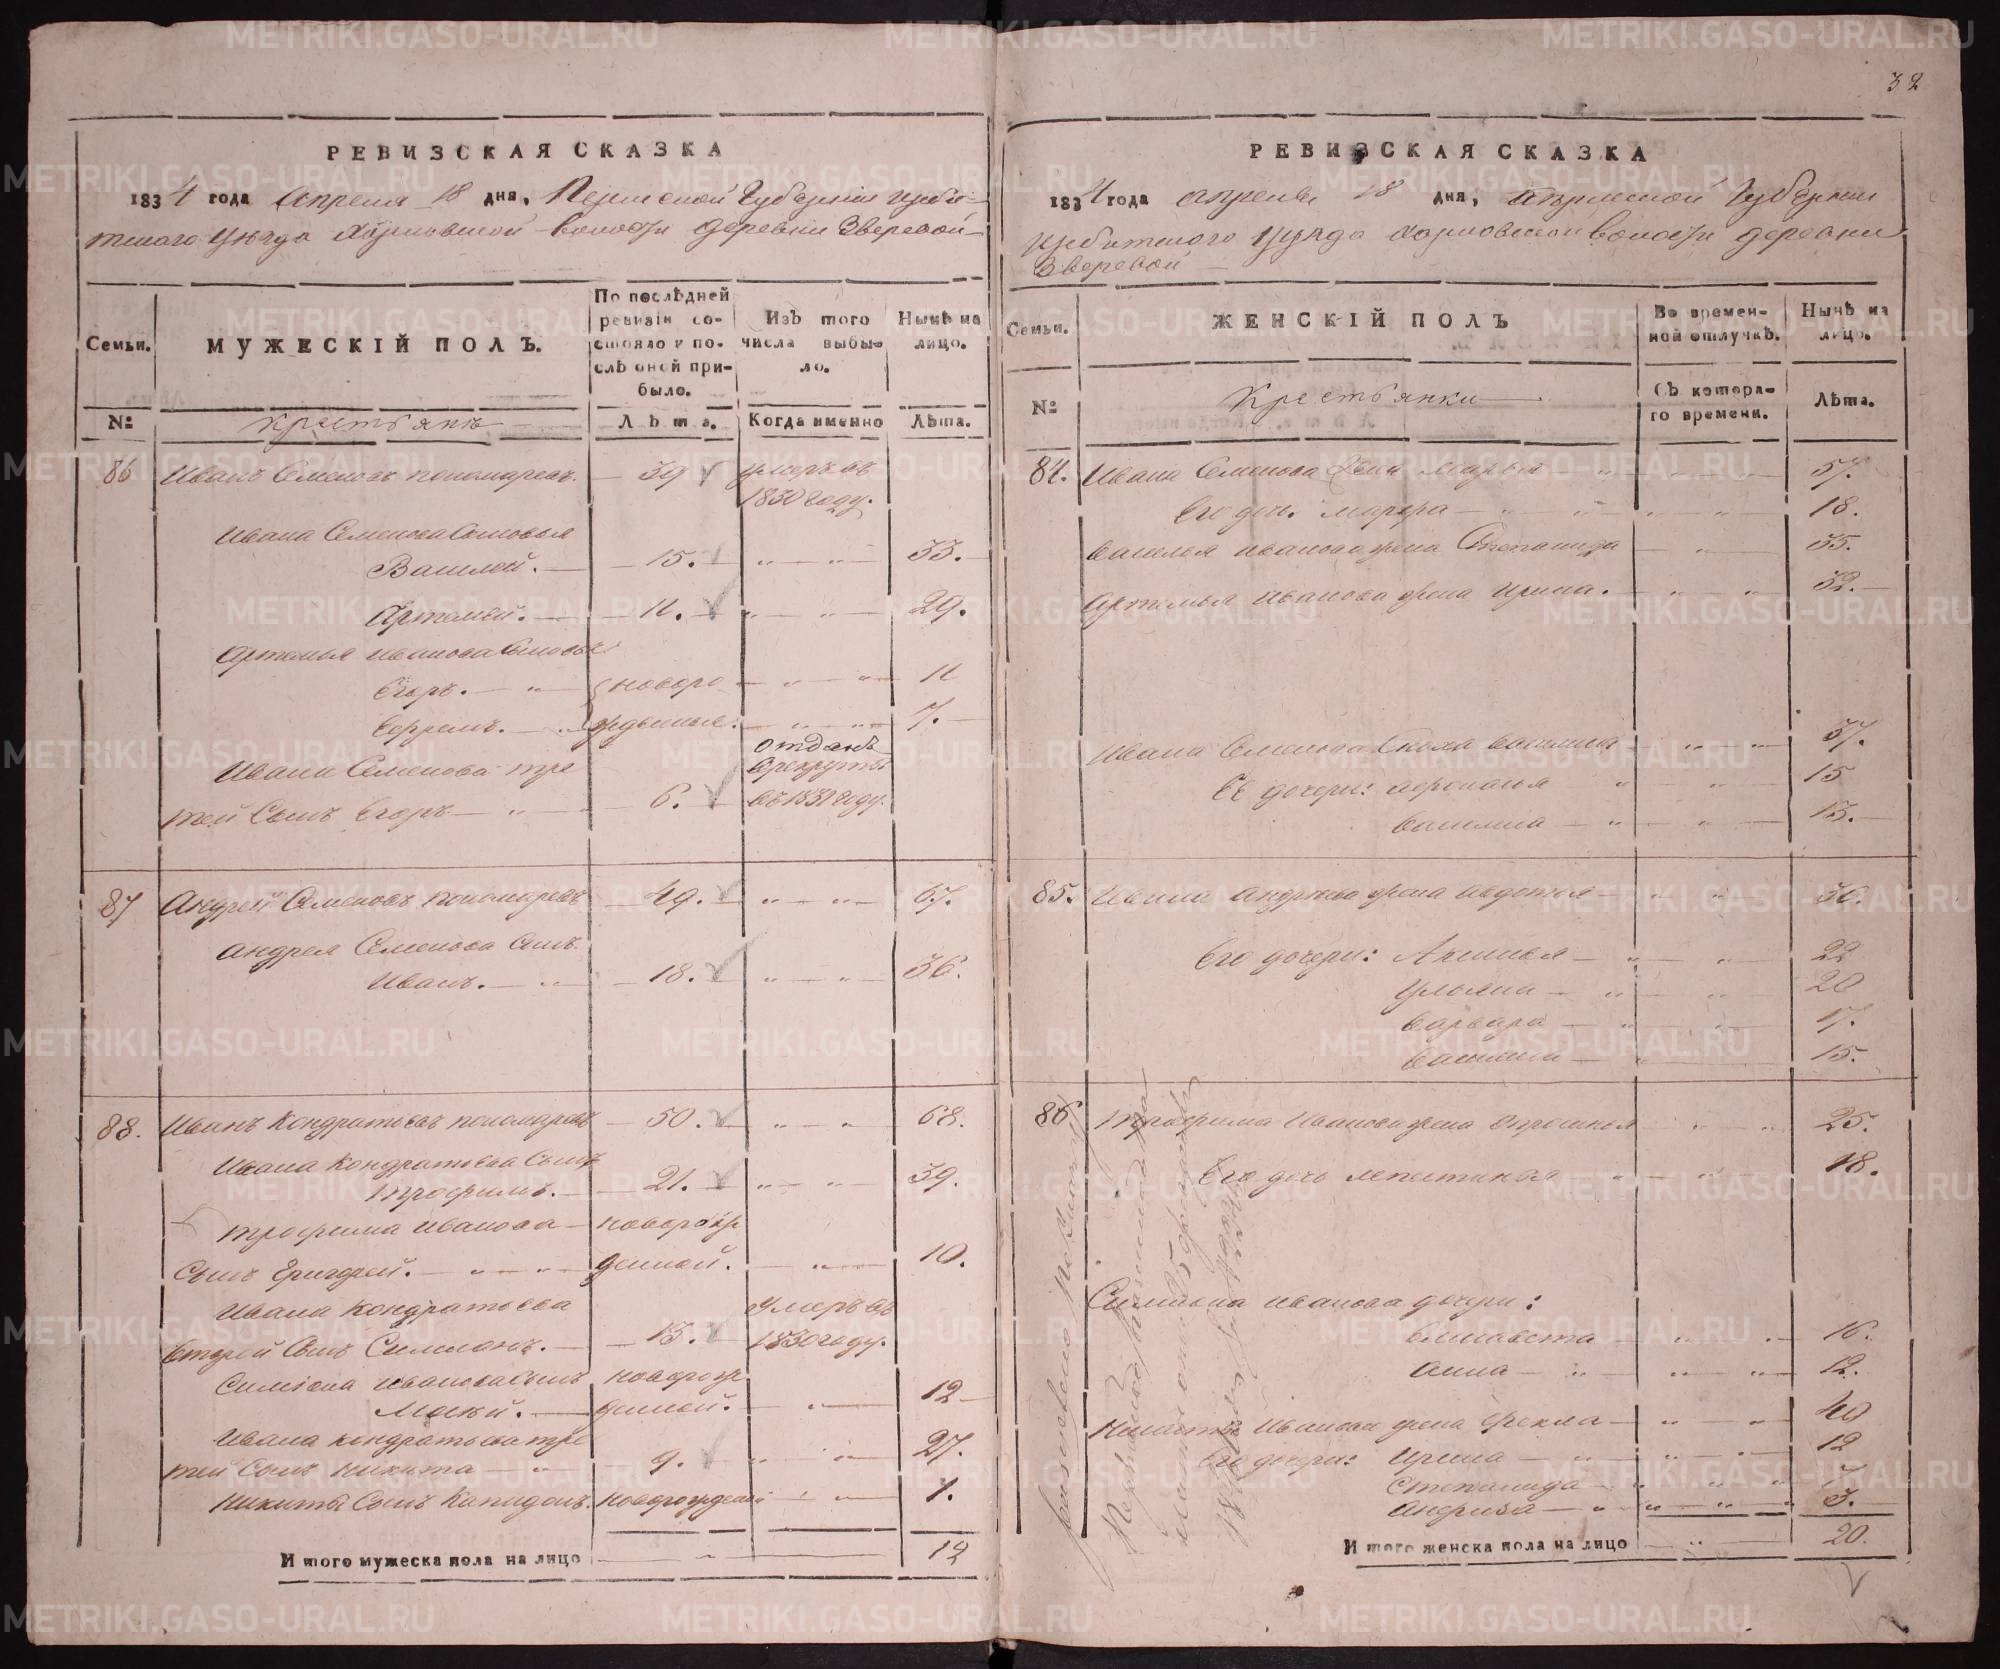 32
РЕВИЗСКАЯ СКАЗКА
1834 года Апреля 18 дня, Пермской Губернии Ирби-
тскаго Уезда Харловской волости деревни Зверевой
Семьи.
МУЖЕСКІЙ ПОЛЪ.
По послѣдней ревизіи состояло и послѣ оной прибыло.
Изъ того числа выбыло.
Нынѣ на лицо.
№
Крестьянъ
Лѣта.
Когда именно
Лѣта.
86 Иванъ Семеновъ пономаревъ. 39 умеръ въ
1830 году.
Ивана Семенова Сыновья
Василей. 15. 33.
Артемей. 11. 29.
Артемья Иванова Сыновья
Егоръ. новоро 11
Ефремъ. жденыя. 7.
отданъ
Ивана Семенова тре врекруты
тей Сынъ Егоръ 6. въ 1831 году.
87 Андрей Семеновъ пономаревъ 49. 67.
Андрея Семенова Сынъ
Иванъ. 18. 36.
88. Иванъ Кондратьевъ пономаревъ 50. 68.
Ивана Кондратьева Сынъ
Трофимъ. 21. 39.
Трофима Иванова новорож
Сынъ Григорей. денной. 10.
Ивана Кондратьева умеръ въ
второй Сынъ Симионъ. 13. 1830 году.
Симиона Иванова Сынъ новорож
Мокей. денной. 12
Ивана кондратьева тре
тей Сынъ никита 9. 27.
Никиты Сынъ Капидонъ. новорожденной 1.
Итого мужеска пола на лицо 12
РЕВИЗСКАЯ СКАЗКА
1834 года апреля 18 дня, Пермской Губернии
Ирбитскаго Уезда Харловской волости деревни
Зверевой
Семьи.
ЖЕНСКІЙ ПОЛЪ
Во временной отлучкѣ.
Нынѣ на лицо.
№
Крестьянки
Съ котораго времени.
Лѣта.
84. Ивана Семенова жена Марья 57.
Его дочь: марфа 18.
Василья Иванова жена Степанида 35.
Артемья Иванова жена Ирина. 32.
Ивана Семенова Сноха василиса 37.
Её дочери: афонасья 15
василиса 13.
85. Ивана андреева жена авдотья 36.
Его дочери: Аксинья 22
Ульяна 20
варвара 17.
василиса 15.
86 Трофима Иванова жена Офросинья 25.
Его дочь 18.
Симиона Иванова дочери:
Елисавета 16.
анна 12.
Никиты Иванова жена фекла 40
Его дочери: Ирина 12
Степанида 7.
3.
Итого женска пола на лицо 20.
METRIKI.GASO-URAL.RU